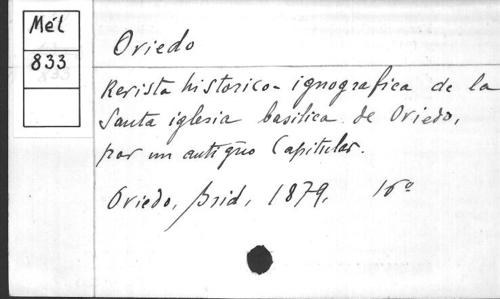 Mél
833
Oviedo
Revista historico-ignografica de la
Santa iglesia basilica de Oviedo,
por un antigüo Capitular.
Oviedo, Brid, 1879, 16º